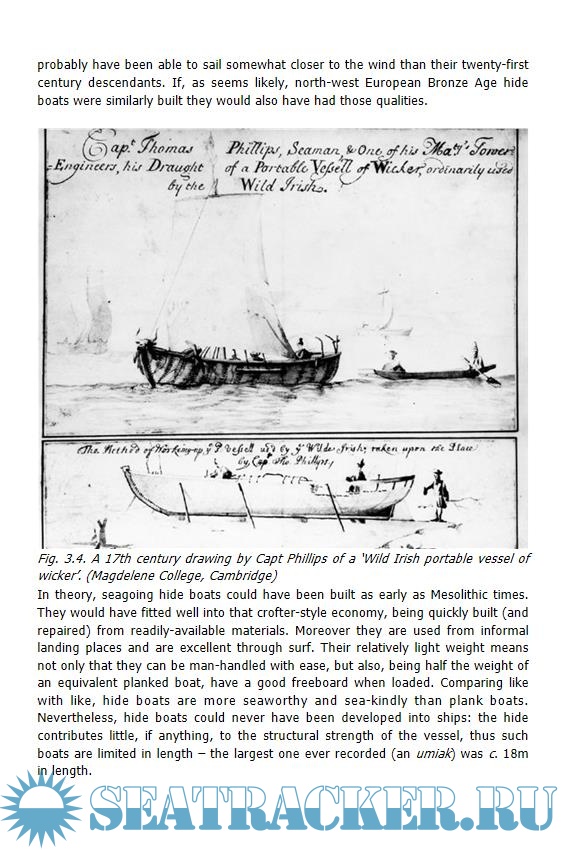 probably have been able to sail somewhat closer to the wind than their twenty-first
century descendants. If, as seems likely, north-west European Bronze Age hide
boats were similarly built they would also have had those qualities.
Capt Thomas Phillips, Seaman, & One of his Matys Tower
=Engineers, his Draught of a Portable Vessell of Wicker, ordinarily used
by the Wild Irish.
The Method of Working up ye P. Vessell us'd by ye Wilde Irish; taken upon the Place
by Capt Tho. Phillips,
Fig. 3.4. A 17th century drawing by Capt Phillips of a 'Wild Irish portable vessel of
wicker'. (Magdelene College, Cambridge)
In theory, seagoing hide boats could have been built as early as Mesolithic times.
They would have fitted well into that crofter-style economy, being quickly built (and
repaired) from readily-available materials. Moreover they are used from informal
landing places and are excellent through surf. Their relatively light weight means
not only that they can be man-handled with ease, but also, being half the weight of
an equivalent planked boat, have a good freeboard when loaded. Comparing like
with like, hide boats are more seaworthy and sea-kindly than plank boats.
Nevertheless, hide boats could never have been developed into ships: the hide
contributes little, if anything, to the structural strength of the vessel, thus such
boats are limited in length – the largest one ever recorded (an umiak) was c. 18m
in length.
SEATRACKER.RU